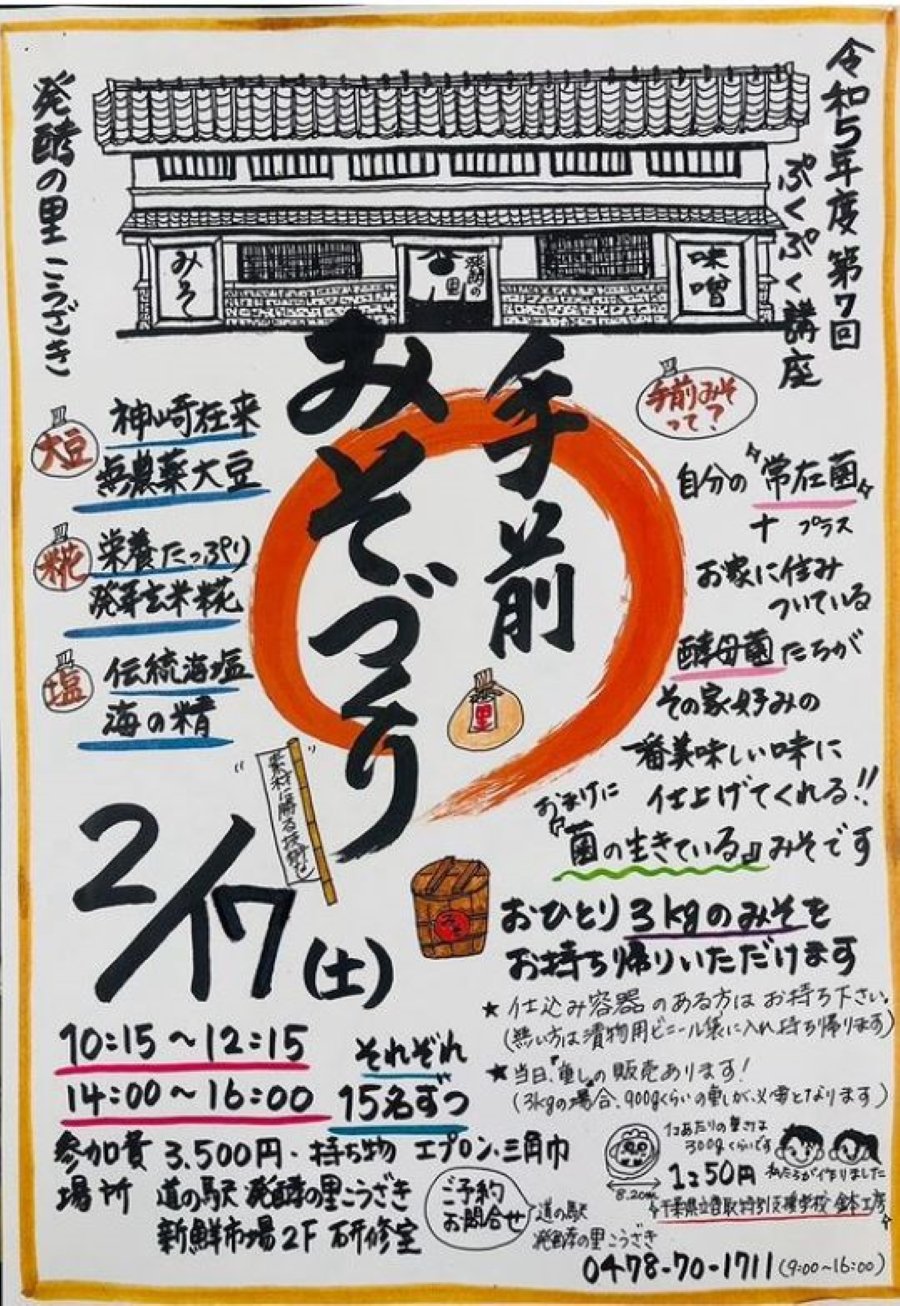 令和5年度第7回
ぷくぷく講座
発酵の里こうざき
みそ
発酵の
里
味噌
手前
みそづくり
大豆
神崎在来
無農薬大豆
糀
栄養たっぷり
発芽玄米糀
塩
伝統海塩
海の精
里
手前みそ
って?
自分の"常在菌"
+プラス
お家に住み
ついている
酵母菌たちが
その家好みの
一番美味しい味に
仕上げてくれる!!
おまけに
『菌の生きている』みそです
2/17(土)
みそ
おひとり3kgのみそを
お持ち帰りいただけます
★仕込み容器のある方はお持ち下さい。
(無い方は漬物用ビニール袋に入れ持ち帰ります)
★当日、重しの販売あります!
(3kgの場合、900gくらいの重しが必要となります)
10:15〜12:15
14:00〜16:00
それぞれ
15名ずつ
参加費 3.500円・持ち物 エプロン・三角巾
場所 道の駅 発酵の里こうざき
新鮮市場2F 研修室
1コあたりの重さは
300gくらいです
8.2cm
1コ50円
私たちが作りました
千葉県立香取特別支援学校
ご予約
お問合せ
道の駅
発酵の里こうざき
0478-70-1711(9:00〜16:00)